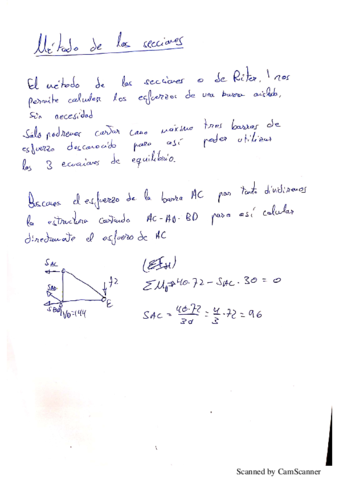 Método de las secciones
El método de las secciones o de Ritter! nos
permite calcular los esfuerzos de una barra aislada,
sin necesidad
Solo podremos cortar como máximo tres barras de
esfuerzo desconocido para así poder utilizar
las 3 ecuaciones de equilibrio.
Buscamos el esfuerzo de la barra AC por tanto dividiremos
la estructura cortando AC-AD-BD para así calcular
directamente el esfuerzo de AC
SAC
SAD
SBD
72
E
VD=144
ΣMD=40·72 - SAC·30 = 0
SAC = 40·72/30 = 4/3·72 = 96
Scanned by CamScanner